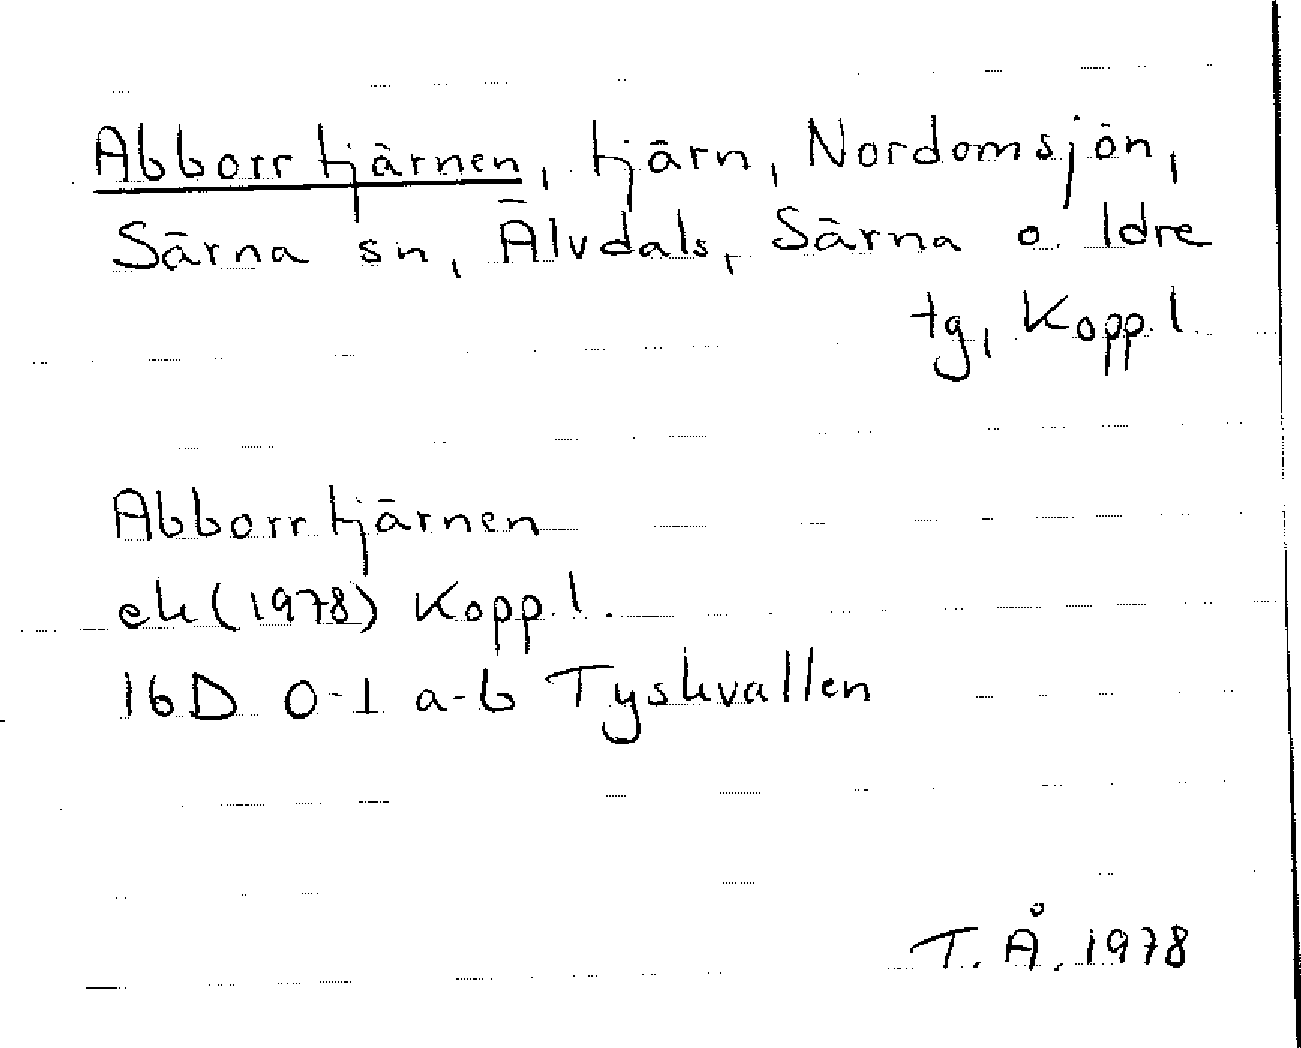 Abborrtjärnen, tjärn, Nordomsjön,
Särna sn, Älvdals, Särna o. Idre
tg, Kopp. l
Abborrtjärnen
ek (1978) Kopp. l.
16D 0-1 a-b Tyskvallen
T. Å. 1978